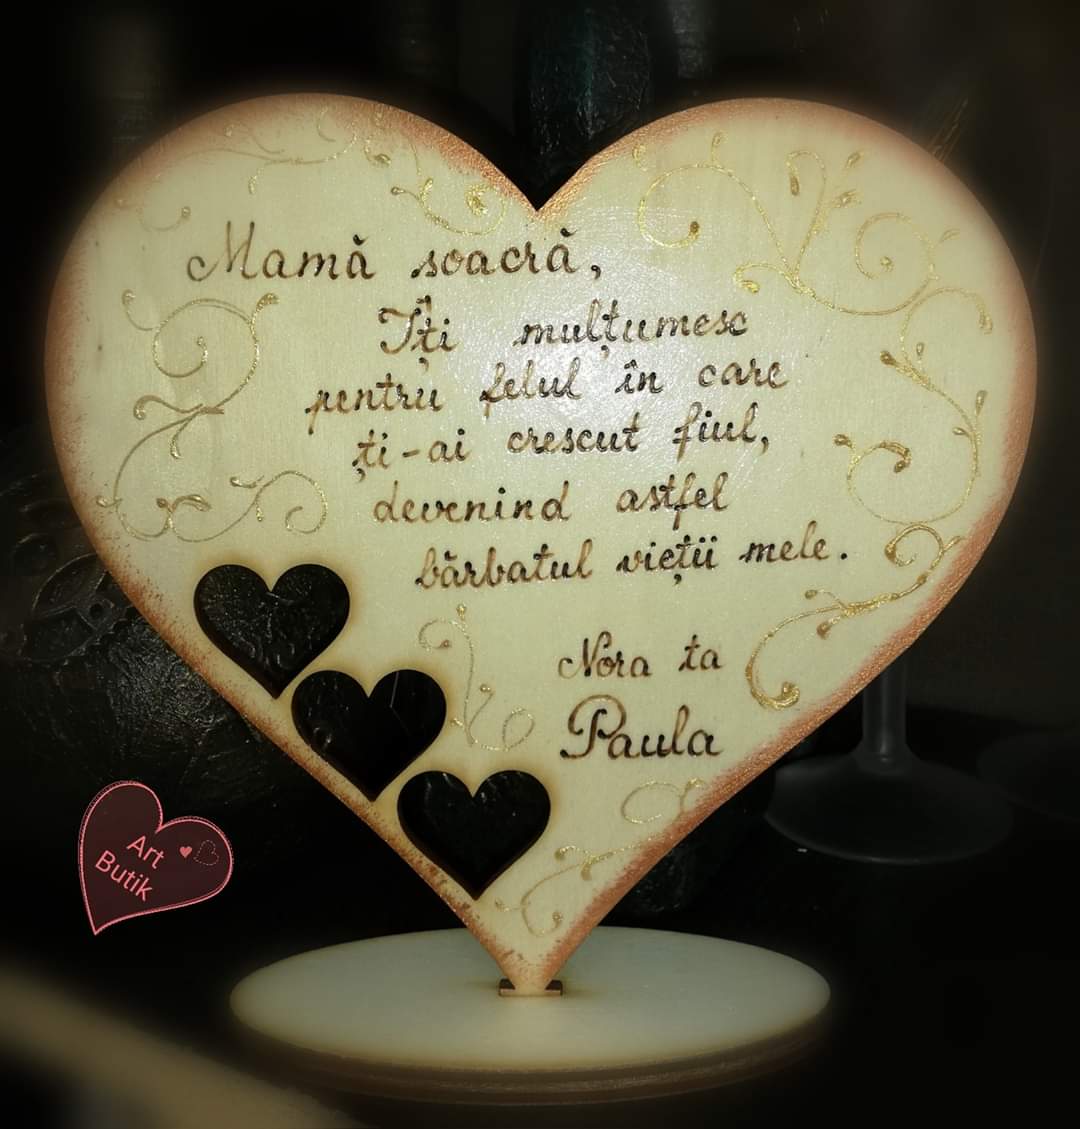 Mamă soacră,
Îți mulțumesc
pentru felul în care
ți-ai crescut fiul,
devenind astfel
bărbatul vieții mele.
Nora ta
Paula
Art
Butik